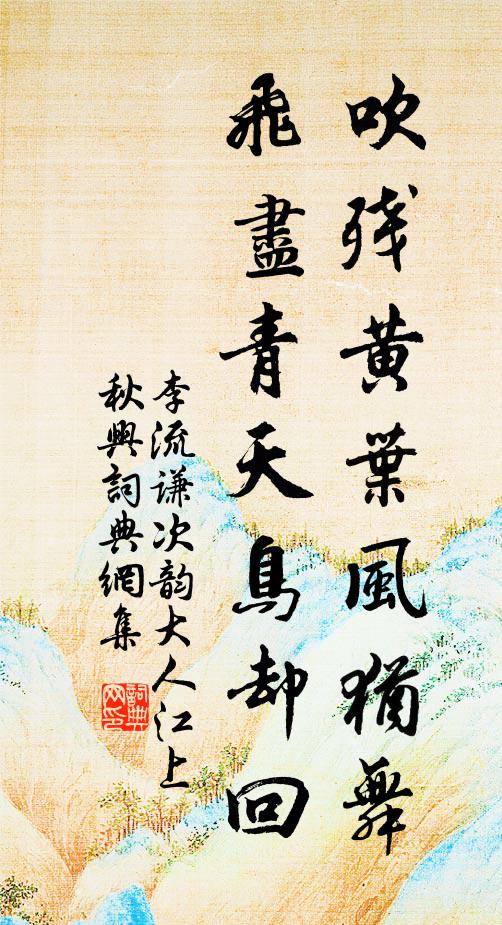 吹残黄葉風猶舞
飛盡青天鳥却回
李流谦次韵大人江上
秋興詞典網集
詞典
网印